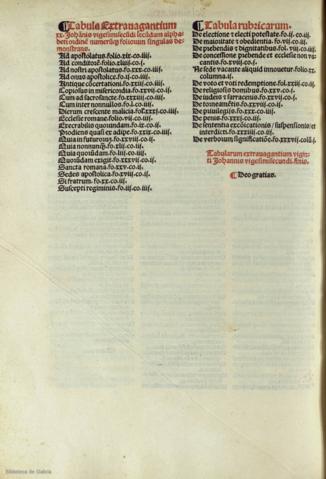 Tabula Extrauagantium
xx. Johãnis vigesimisecũdi secũdum alpha
beti ordinẽ numerũq̃ folioruʒ singulas de
monstrans.
Ad apostolatus. folio.xix.co.iiij.
Ad conditorẽ. folio.xliij.co.j.
Ad nostri apostolatus. fo.xxx.co.iij.
Ad onus apostolice. fo.xij.co.j.
Antique cõcertationis. fo.xxij.co.j.
Copiosus in misericordia. fo.xxij.co.ij.
Cum ad sacrosancte. fo.xxiiij.co.iij.
Cum inter nonnullos. fo.l.co.iij.
Dierum crescente malicia. fo.xxxj.co.iij.
Ecclesie romane. folio.vij.co.j.
Execrabilis quorundam. fo.ix.co.j.
Prodiens quasi ex adipe. fo.xix.co.iiij.
Quia in futurorum. fo.xvij.co.ij.
Quia nonnunq̃. fo.xlj.co.ij.
Quia quorũdam. fo.liij.co.iiij.
Quorũdam exigit. fo.xxxvij.co.ij.
Sancta romana. fo.xxv.co.ij.
Sedes apostolica. fo.xxvij.co.ij.
Si fratrum. fo.xx.co.iij.
Suscepti regiminis. fo.iij.co.iiij.
Tabula rubricarum.
De electione et electi potestate. fo.ij.co.ij.
De maioritate et obedientia. fo.vij.co.j.
De prebendis et dignitatibus. fol.viij.co.iiij.
De concessione prebende et ecclesie non va
cantis. fo.xviij.co.j.
Ne sede vacante aliquid innouetur. folio.xx.
columna.ij.
De voto et voti redemptione. fol.xxiij.co.ij.
De religiosis domibus. fo.xxv.co.ij.
De iudeis et sarracenis. fo.xxvij.co.ij.
De torneamẽtis. fo.xxviij.co.ij.
De priuilegiis. fo.xxxj.co.iij.
De penis. fo.xxxij.co.iij.
De sententia excõicationis / suspensionis et
interdicti. fo.xxxiij.co.iij.
De verborum significatiõe. fo.xxxviij.colũ.j.
Tabularum extrauagantium vigin
ti Johannis vigesimisecundi. finis.
Deo gratias.
Biblioteca de Galicia